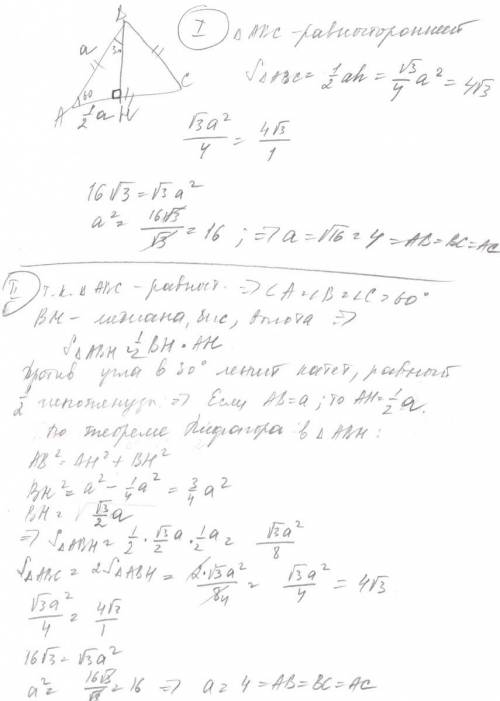 B
a
30
60
A
1/2 a
H
C
I
△ABC - равносторонний
S△ABC = 1/2 ah = √3/4 a² = 4√3
√3a²/4 = 4√3/1
16√3 = √3a²
a² = 16√3/√3 = 16 ; => a = √16 = 4 = AB = BC = AC
II
т.к. △ABC - равност. => ∠A = ∠B = ∠C = 60°
BH - медиана, бис, высота =>
S△ABH = 1/2 BH · AH
Против угла в 30° лежит катет, равный
1/2 гипотенузы => Если AB = a; то AH = 1/2 a.
По теореме Пифагора в △ABH:
AB² = AH² + BH²
BH² = a² - 1/4 a² = 3/4 a²
BH = √3/2 a
=> S△ABH = 1/2 · √3/2 a · 1/2 a = √3a²/8
S△ABC = 2S△ABH = 2·√3a²/84 = √3a²/4 = 4√3
√3a²/4 = 4√3/1
16√3 = √3a²
a² = 16√3/√3 = 16 => a = 4 = AB = BC = AC